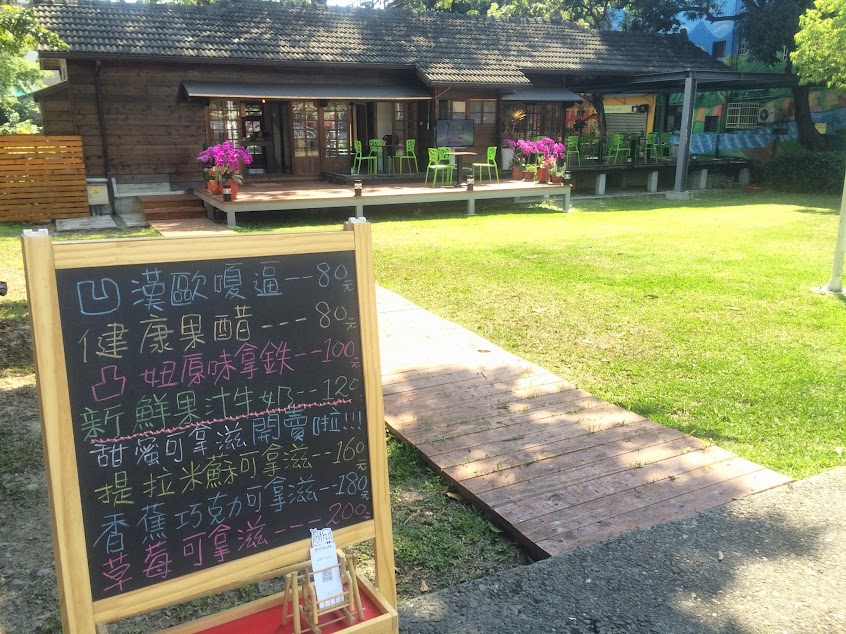 凹漢歐嗄逼--80元
健康果醋---80元
凸妞原味拿鉄--100元
新鮮果汁牛奶--120
甜蜜可拿滋開賣啦!!!
提拉米蘇可拿滋--160元
香蕉巧克力可拿滋--180元
草莓可拿滋---200元